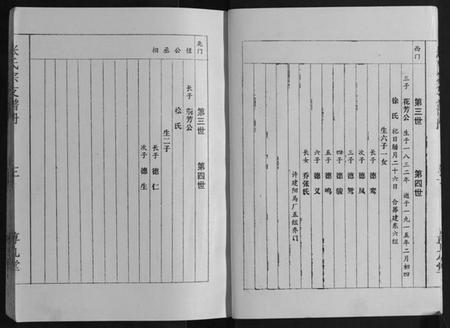 西门
第三世 第四世
三子 花芳公 生于一八三二年 逝于一九一五年二月初四
徐氏 忌日腊月二十六日 合葬建东六组
生六子一女
长子 德鸾
次子 德凤
三子 德鸳
四子 德骏
五子 德鸣
六子 德义
长女 乔张氏
许建阳马厂五组乔门
北门
恒公丞相
第三世 第四世
长子 芳公
氏
生二子
长子 德仁
次子 德生
张氏宗支谱册
三